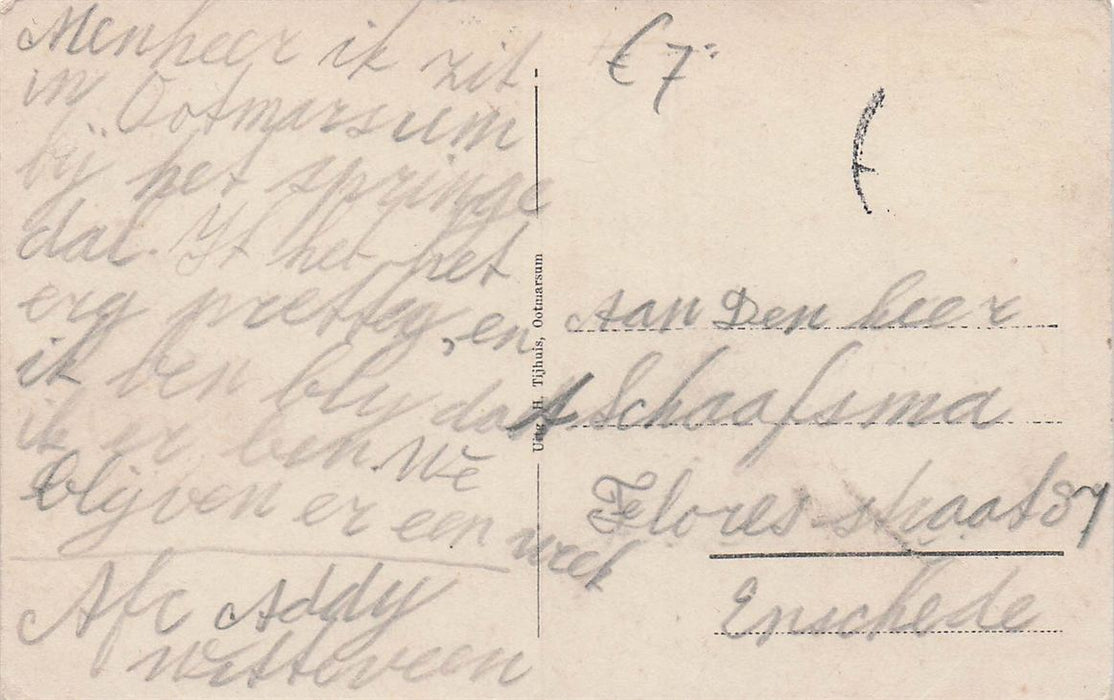 Menheer ik zit
in Ootmarsum
bij het springe
dal. Ik heb het
erg prettig, en
ik ben bly dat
ik er ben. We
blijven er een week
Afz Addy
Witteveen
Uitg. H. Tijhuis, Ootmarsum
€ 7
Aan Den heer
A Schaafsma
Flores straat 87
Enschede